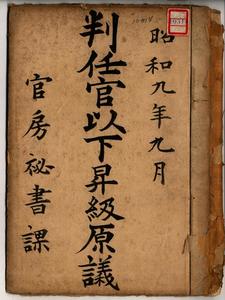 昭和九年九月
判任官以下昇級原議
官房祕書課